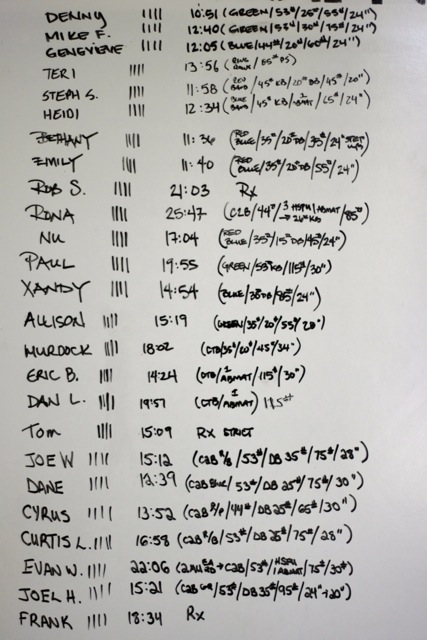 DENNY |||| 10:51 (GREEN/53#/25#/55#/24")
MIKE F. |||| 12:40 (GREEN/53#/30#/75#/24")
GENEVIEVE |||| 12:05 (BLUE/44#/20#/60#/24")
TERI |||| 13:56
STEPH S. |||| 11:58 (RED BAND/45# KB/20# DB/45#/20")
HEIDI |||| 12:34 (BLUE BAND/45# KB/1 ABMAT/65#/24")
BETHANY |||| 11:36 (RED BLUE/35#/20# DB/35#/24" STEP UPS)
EMILY |||| 11:40 (RED BLUE/35#/20# DB/55#/24")
ROB S. |||| 21:03 Rx
RONA |||| 25:47 (C2B/44#/3 HSPU 1 ABMAT → 26# KB/85#)
NU |||| 17:04 (RED BLUE/35#/15# DB/45#/24")
PAUL |||| 19:55 (GREEN/55# KB/115#/30")
XANDY |||| 14:54 (BLUE/35# DB/85#/24")
ALLISON |||| 15:19 (GREEN/35#/20#/55#/20")
MURDOCK |||| 18:02 (CTB/35#/60#/45#/34")
ERIC B. |||| 14:24 (CTB/1 ABMAT/115#/30")
DAN L. |||| 19:57 (CTB/1 ABMAT) 115#
TOM |||| 15:09 RX STRICT
JOE W |||| 15:12 (C2B R/B/53#/DB 35#/75#/28")
DANE |||| 12:39 (C2B BLUE/53#/DB 25#/75#/30")
CYRUS |||| 13:52 (C2B P/P/44#/DB 25#/65#/30")
CURTIS L. |||| 16:58 (C2B R/B/53#/DB 25#/75#/28")
EVAN W. |||| 22:06 → C2B/53#/HSPU 1 ABMAT/75#/30")
JOEL H. |||| 15:21 (C2B GR/53#/DB 35#/95#/24"→20")
FRANK |||| 18:34 Rx